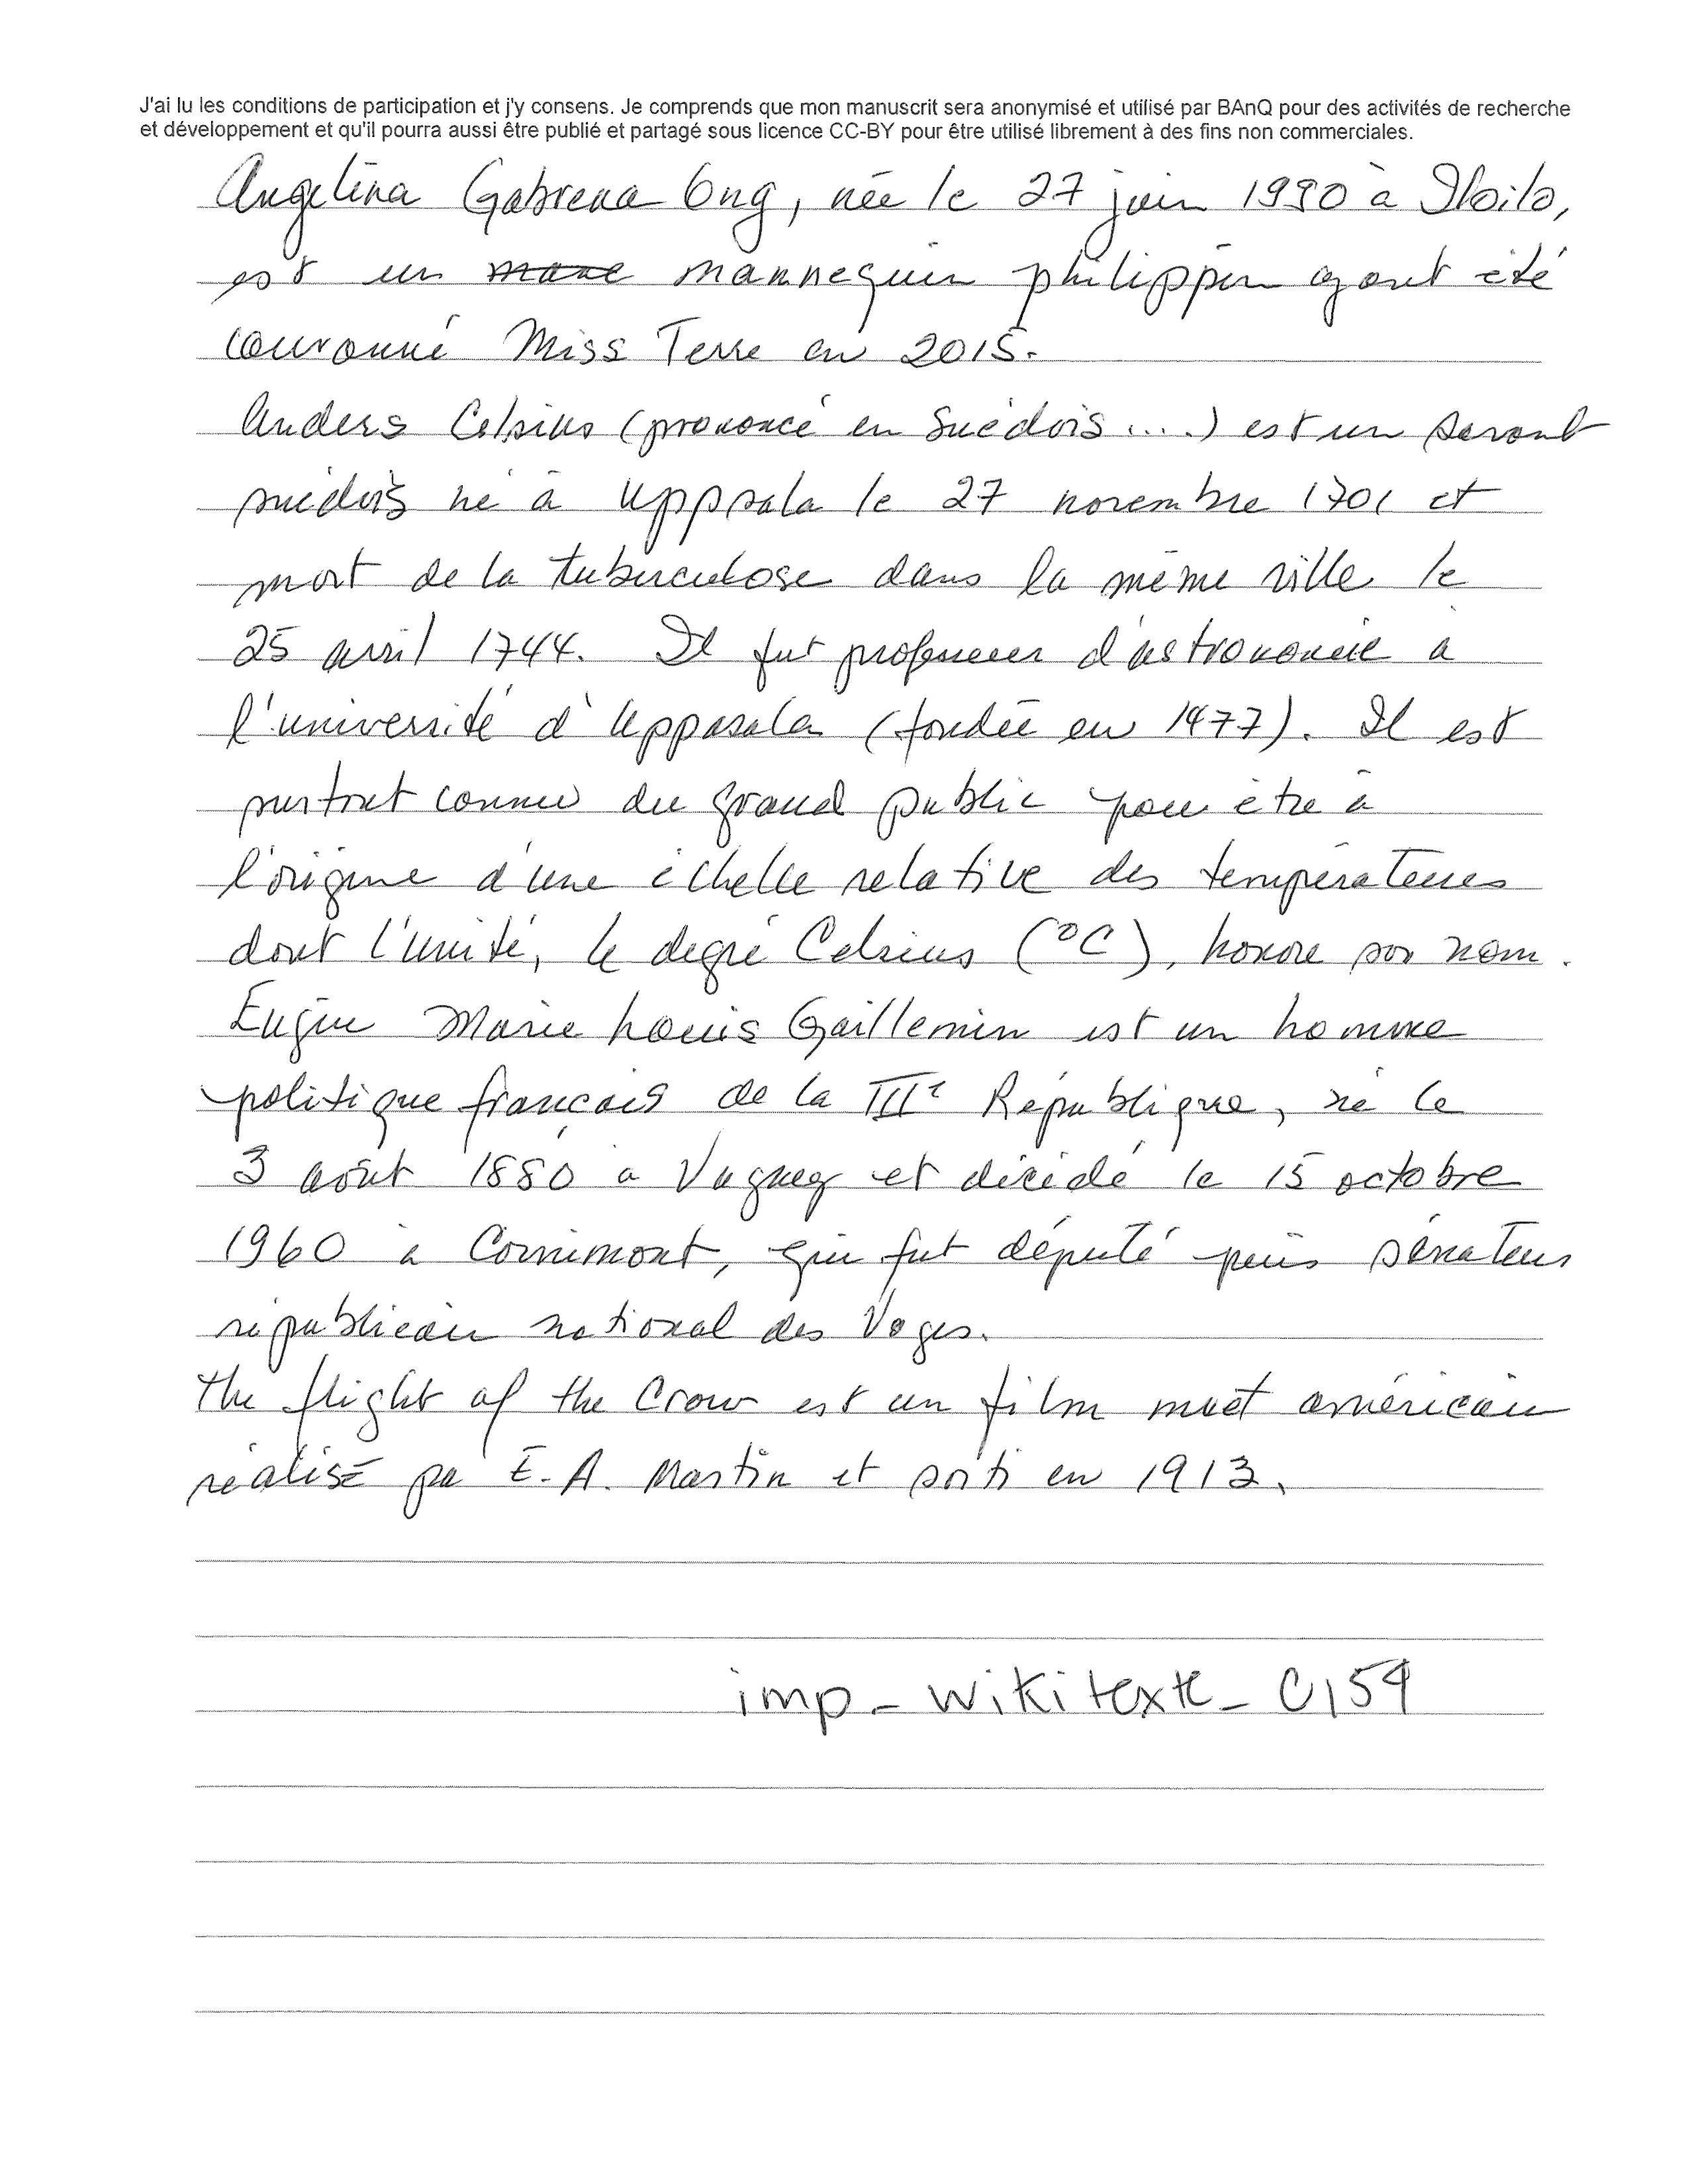 J'ai lu les conditions de participation et j'y consens. Je comprends que mon manuscrit sera anonymisé et utilisé par BAnQ pour des activités de recherche
et développement et qu'il pourra aussi être publié et partagé sous licence CC-BY pour être utilisé librement à des fins non commerciales.
Angelina Gabrena Ong, née le 27 juin 1990 à Iloilo,
est un mane mannequin philippin ayant été
couronné Miss Terre en 2015.
Anders Celsius (prononcé en Suédois ....) est un savant
suédois né à Uppsala le 27 novembre 1701 et
mort de la tuberculose dans la même ville le
25 avril 1744. Il fut professeur d'astronomie à
l'université d'Uppasala (fondée en 1477). Il est
surtout connu du grand public pour être à
l'origine d'une échelle relative des températures
dont l'unité, le degré Celsius (°C), honore son nom.
Eugène Marie Louis Gaillemin est un homme
politique français de la IIIe République, né le
3 août 1880 à Vagney et décédé le 15 octobre
1960 à Cornimont, qui fut député puis sénateur
républicain national des Voges.
The flight of the Crow est un film muet américain
réalisé par E.A. Martin et sorti en 1913.
imp_wikitexte_0159